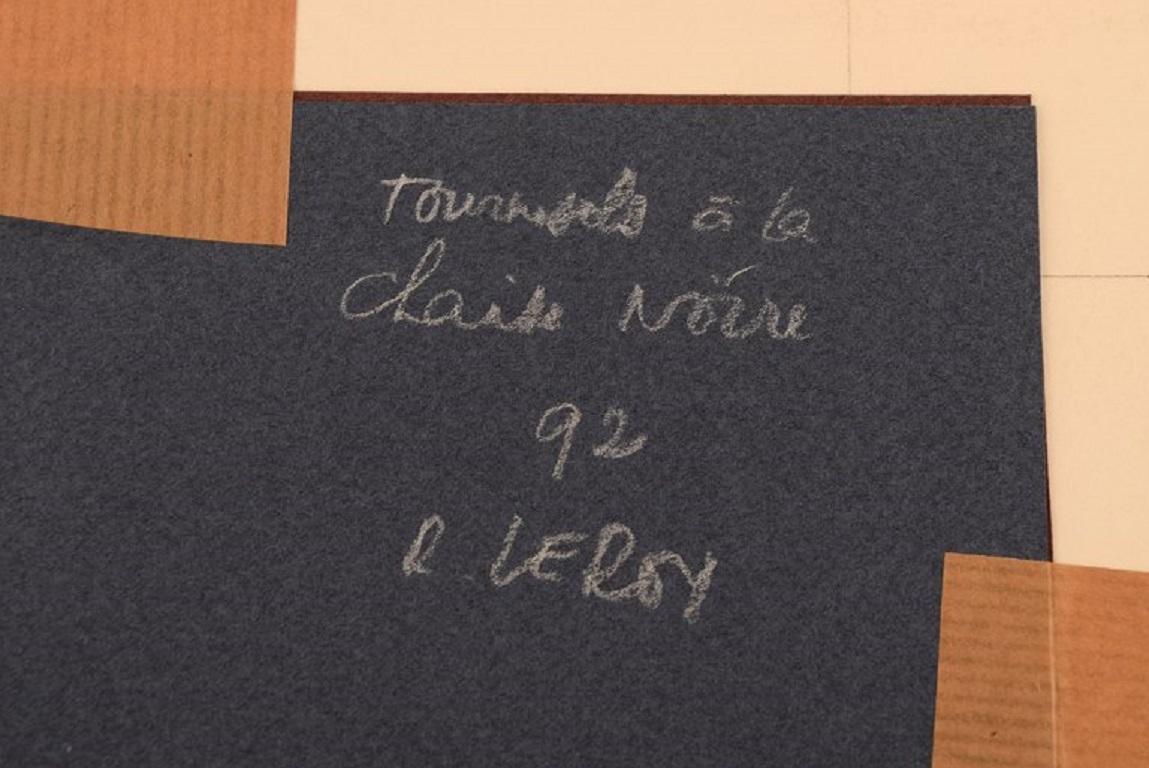 Tournesols à la
chaise Noire
92
R LEROY